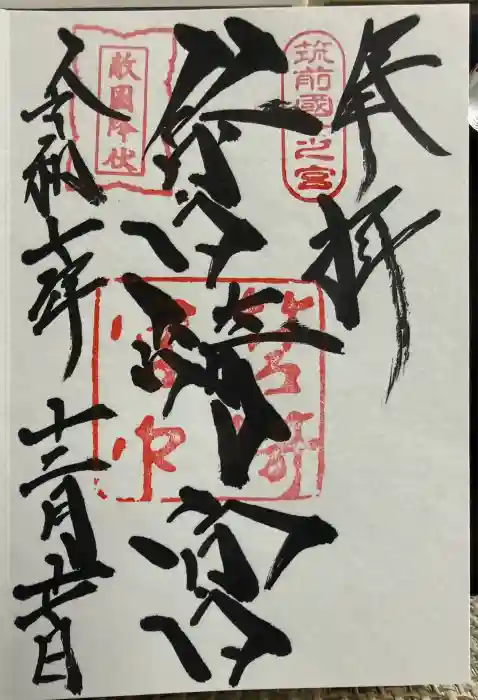 奉拝
筑前國一之宮
筥崎宮
筥崎宮印
敵國降伏
令和七年十二月廿日